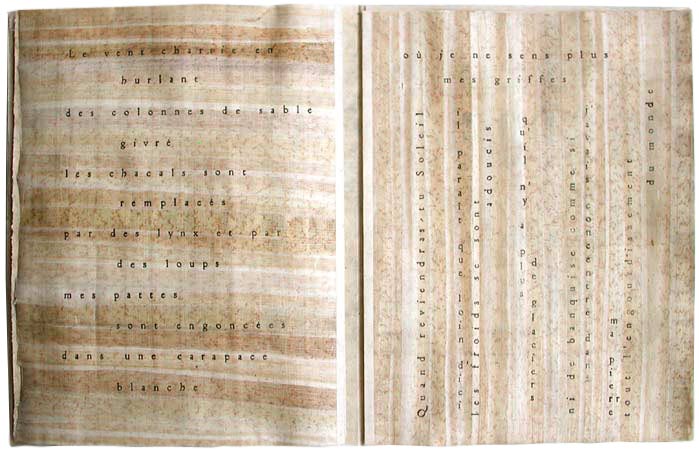 Le vent charrie en
hurlant
des colonnes de sable
givré
les chacals sont
remplacés
par des lynx et par
des loups
mes pattes
sont engoncées
dans une carapace
blanche
où je ne sens plus
mes griffes
Quand reviendras-tu Soleil
il paraît que loin d'ici
les froids se sont
adoucis
qu'il n'y a plus
de glaciers
ni de banquise comme si
j'avais concentré dans
ma pierre
tout l'engourdissement
du monde